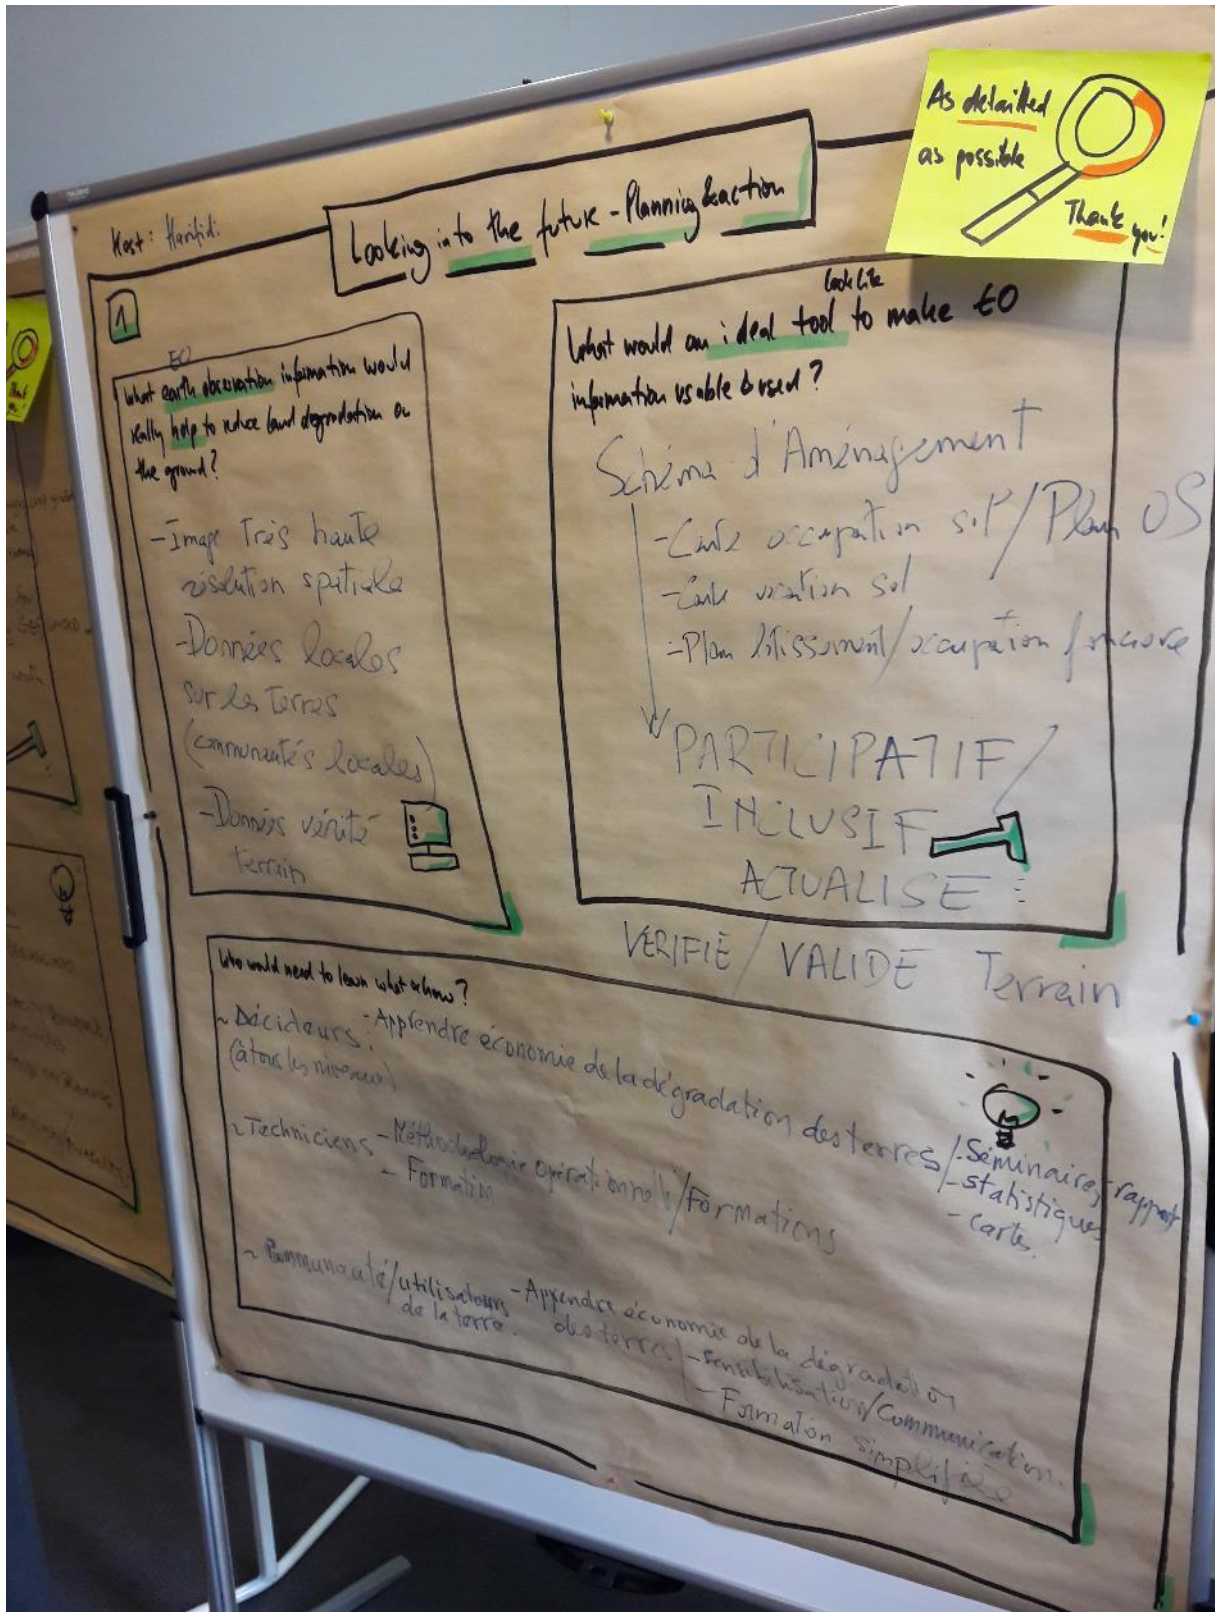 As detailled
as possible
Thank you!
Host: Harifidi
Looking into the future - Planning & action
1
EO
What earth observation information would
really help to reduce land degradation on
the ground?
- Image Très haute
résolution spatiale
- Données locales
sur les terres
(communautés locales)
- Données vérité
terrain
look like
What would an ideal tool to make EO
information usable & used?
Schéma d'Aménagement
- Carte occupation sol / Plan OS
- Carte vocation sol
- Plan lotissement / occupation foncière
PARTICIPATIF /
INCLUSIF
ACTUALISE
VERIFIE / VALIDE Terrain
Who would need to learn what & how?
~ Décideurs : - Apprendre économie de la dégradation des terres / - Séminaires, rapport
(à tous les niveaux)
- statistiques
- cartes.
~ Techniciens - Méthodologie opérationnelle / Formations
- Formation
~ Communauté / utilisateurs - Apprendre économie de la dégradation
de la terre. des terres / - Sensibilisation / Communication.
- Formation simplifiée